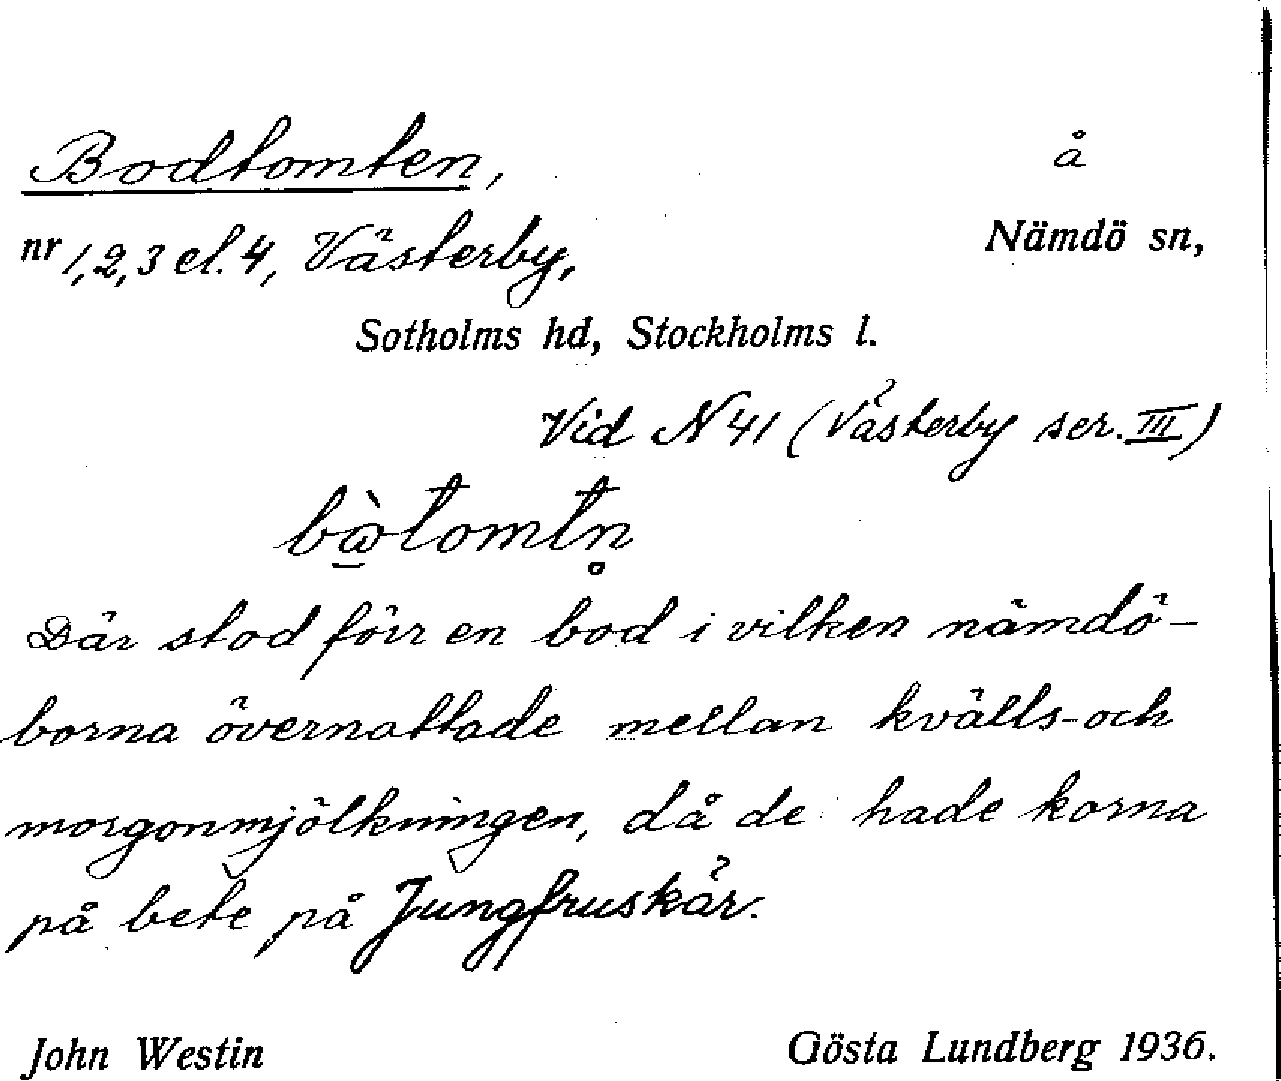 Bodtomten, å
nr 1,2,3 el. 4, Västerby, Nämdö sn,
Sotholms hd, Stockholms l.
Vid N 41 (Västerby ser. III)
bὼtomtn̥
Där stod förr en bod i vilken nämdö-
borna övernattade mellan kvälls- och
morgonmjölkningen, då de hade korna
på bete på Jungfruskär.
John Westin Gösta Lundberg 1936.